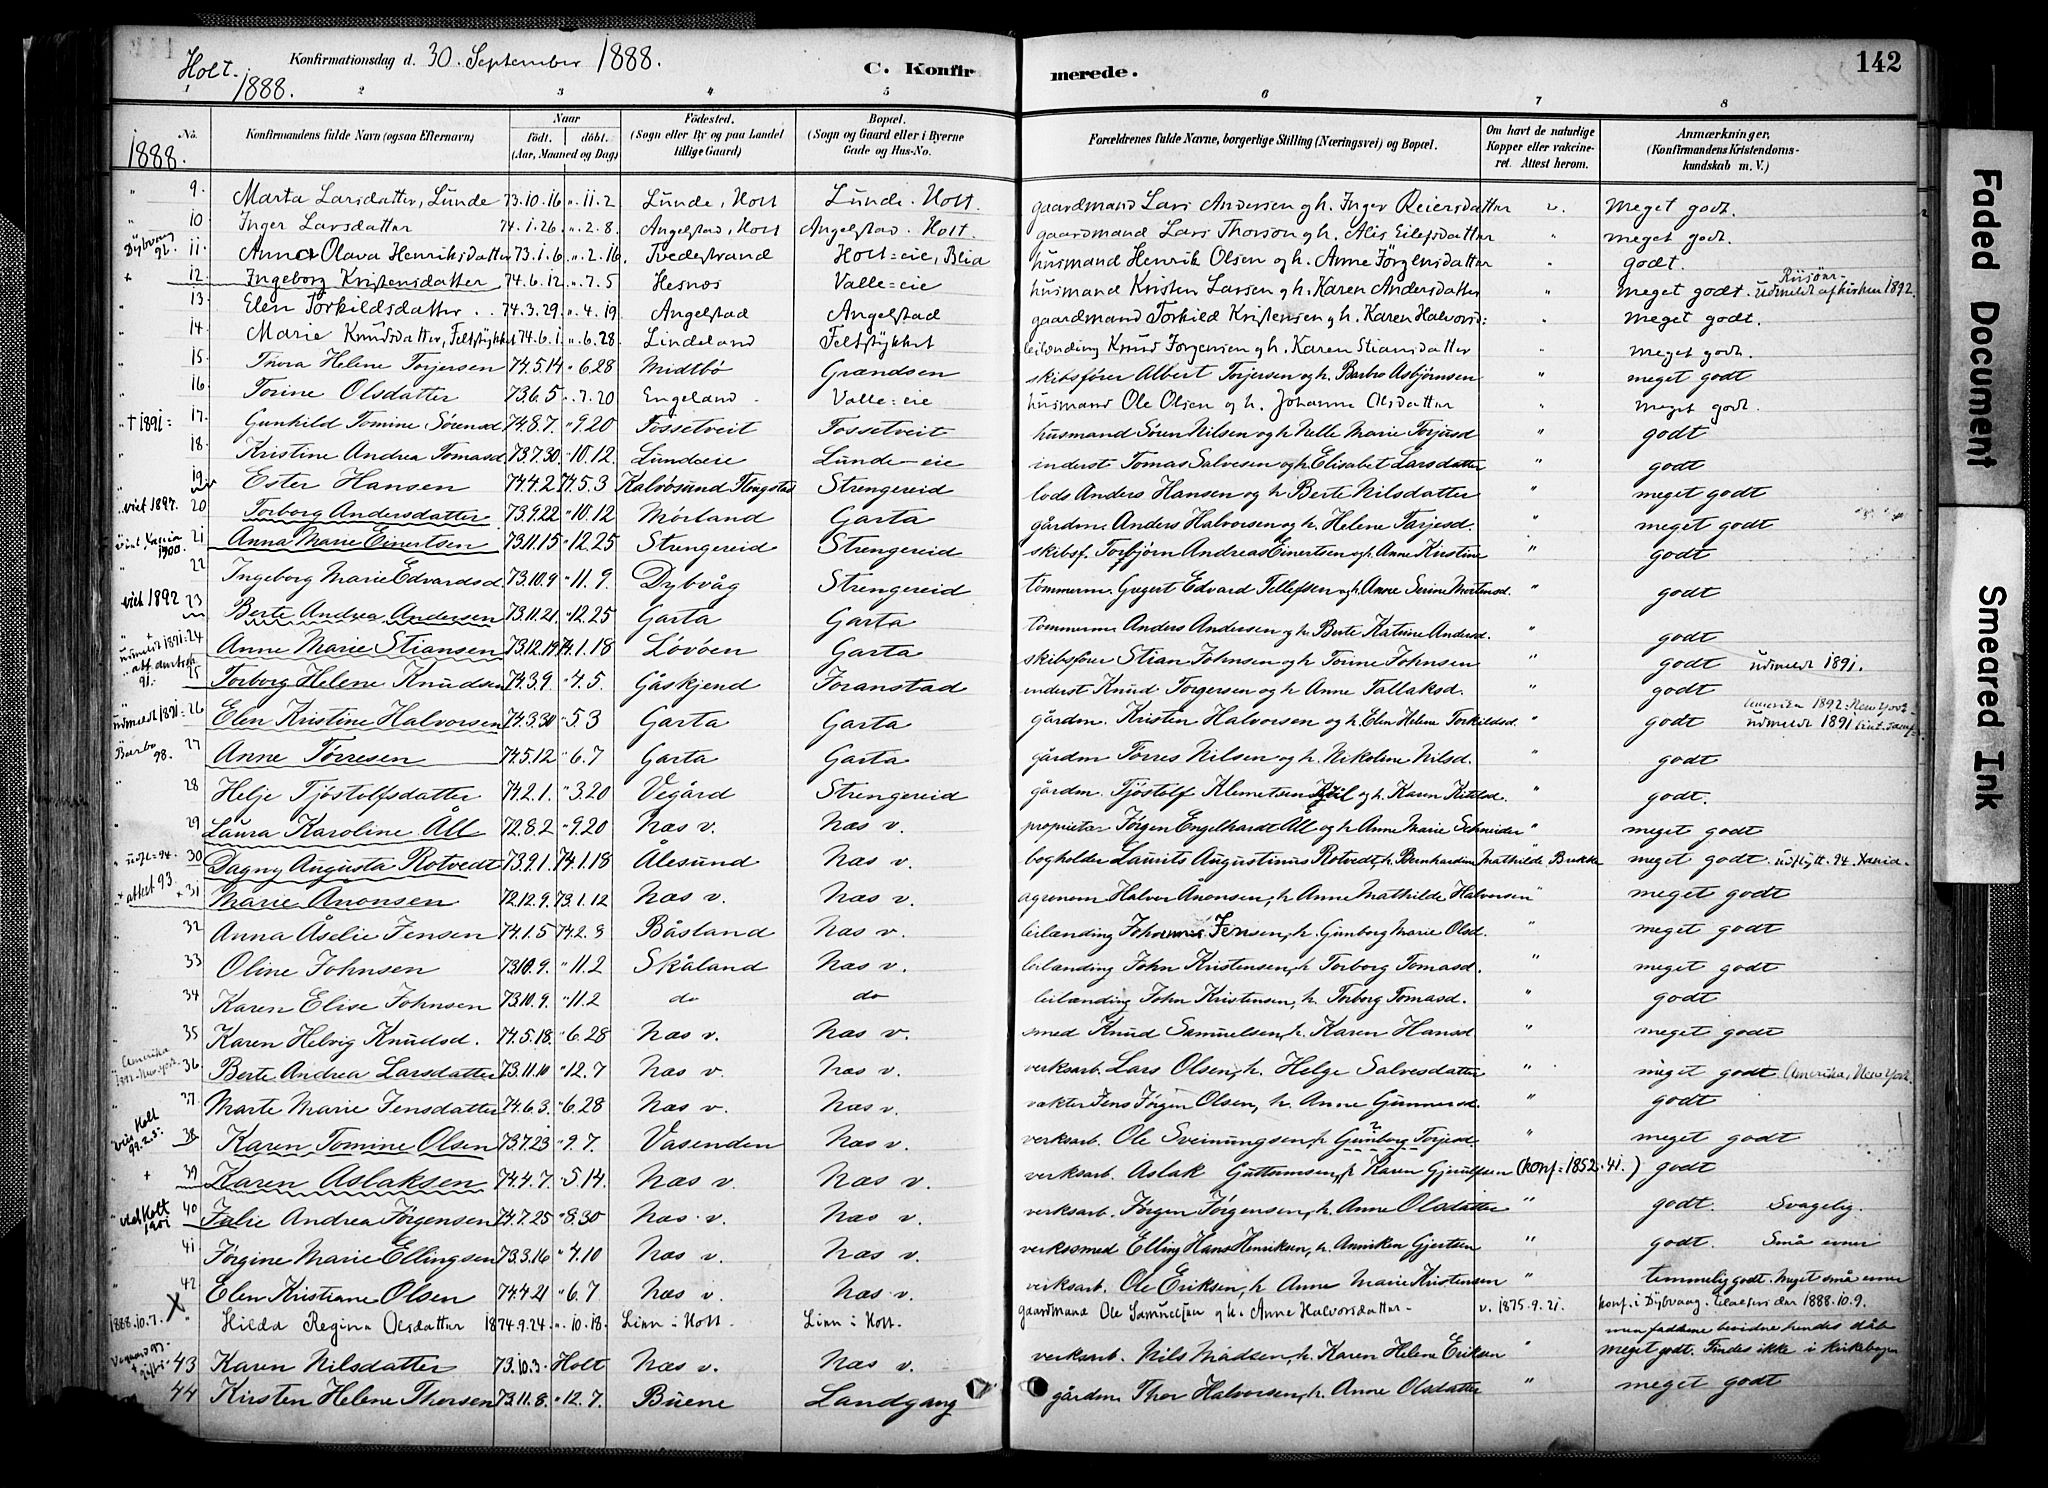 Holt. 1888.
Konfirmationsdag d. 30. September 1888.
C. Konfirmerede.
142
1 2 3 4 5 6 7 8
1888.
No.
Konfirmandens fulde Navn (ogsaa Efternavn)
Naar født. døbt. (Aar, Maaned og Dag)
Fødested. (Sogn eller By og paa Landet tillige Gaard)
Bopæl. (Sogn og Gaard eller i Byerne Gade og Hus-No.
Forældrenes fulde Navne, borgerlige Stilling (Næringsvei) og Bopæl.
Om havt de naturlige Kopper eller vakcineret. Attest herom.
Anmærkninger, (Konfirmandens Kristendomskundskab m. V.)
" 9. Marta Larsdatter, Lunde 73.10.16 ". 11.2 Lunde, Holt Lunde. Holt. gaardmand Lars Andersen og h. Inger Reiersdatter v. Meget godt.
" 10 Inger Larsdatter 74.1.26. ". 2.8. Angelstad, Holt Angelstad. Holt. gaardmand Lars Thorson og h. Alis Eilefsdatter " meget godt.
Dybvaag 92. 11. Anna Olava Henriksdatter 73.1.6 ". 2.16. Tvedestrand Holt=eie, Blia husmand Henrik Olsen og h. Anne Jörgensdatter " godt.
+ 12. Ingeborg Kristensdatter 74.6.12 ". 7.5 Hesnes Valle=eie husmand Kristen Larsen og h. Karen Andersdatter " Meget godt. Riisöer- udmeldt af kirken 1892.
" 13. Elen Torkildsdatter . . 74.3.29. ". 4.19 Angelstad Angelstad gaardmand Torkild Kristensen og h. Karen Halvorsd: " Meget godt.
" 14. Marie Knudsdatter, Feltstykket 74.6.1. ". 6.28 Lindeland Feltstykket leilænding Knud Jorgensen og h. Karen Stiansdatter " Meget godt.
" 15. Thora Helene Torjersen 74.5.14 " 6.28 Midtbö Grændsen skibsförer Albert Torjersen og h. Barbro Asbjörnsen " meget godt
" 16. Torine Olsdatter 73.6.5 ". 7.20 Engeland Valle=eie husmand Ole Olsen og h. Johanne Olsdatter " Meget godt.
" + 1891= 17. Gunhild Tomine Sörensd 74.8.7. " 9.20 Fossetveit Fossetveit husmand Sören Nilsen og h Nelle Marie Torjusd " godt
18. Kristine Andrea Tomasd 73.7.30. " 10.12. Lundeeie Lunde-eie inderst Tomas Salvesen og h Elisabet Larsdatter " godt
" 19 Ester Hansen 74.4.2 74.5.3 Kalvösund Flosta Strengereid lods Anders Hansen og h Berte Nilsdatter " meget godt
viet 1897. 20 Torborg Andersdatter 73.9.22 " 10.12 Mörland Garta gårdm. Anders Halvorsen og h. Helene Tarjesd. " meget godt
viet Xania 1900. 21 Anna Marie Einertsen 73.11.15 " 12.25 Strengereid Strengereid skibsf. Torbjörn Andreas Einertsen og h. Anne Kirstine " godt
" 22 Ingeborg Marie Edvardsd 73.10.9 " 11.9. Dybvåg Strengereid tömmerm Gregert Edvard Tellefsen og h. Anne Serine Mortensd. " godt
viet 1892 23 Berte Andrea Andersen 73.11.21. " 12.25 Garta Garta tömmerm Anders Andersen og h. Berte Katrine Andersd. " godt
" + udmeldt 1891: 24 Anne Marie Stiansen 73.12.14 74.1.18 Lövöen Garta skibsförer Stian Johnsen og h Torine Johnsen " godt udmeldt 1891.
91. 25 Torborg Helene Knudsen 74.3.9 " 4.5. Gåskjend Foranstad inderst Knud Torgersen og h Anne Tallaksd. " godt
udmeldt 1891= 26 Elen Kristine Halvorsen 74.3.30 " 5.3 Garta Garta gårdm. Kristen Halvorsen og h Elen Helene Torkildsd. " godt Amerika 1892: New York udmeldt 1891
Barbo 98. 27 Anne Törresen 74.5.12 " 6.7 Garta Garta gårdm Törres Nilsen og h. Nikoline Nilsd. " godt
" 28 Helje Tjöstolfsdatter 74.2.1. " 3.20 Vegård Strengereid gårdm. Tjöstolf Klemetsen og h. Karen Kittilsd. " godt.
" 29 Laura Karoline Åll 72.8.2 " 9.20 Næs v. Næs v. proprietær Jörgen Engelhardt Åll og h Anne Marie Schneider " meget godt
" udfl=94. 30 Dagny Augusta Rotvedt 73.9.1. 74.1.18 Ålesund Næs v. bogholder Laurits Augustinus Rotvedt, h Bernhardine Mathilde Bukke meget godt udflytt. 94. Xania-
+ attest 93. +31 Marie Ånonsen 72.12.9. 73.1.12 Næs v. Næs v. agronom Halvor Ånonsen, h Anne Mathilde Halvorsen " meget godt
" 32 Anna Åselie Jensen 74.1.5 74.2.8 Båsland Næs v. leilænding Johannes Jensen, h. Gunborg Marie Olsd. " meget godt
" 33 Oline Johnsen 73.10.9. " 11.2 Skåland Næs v. leilænding John Kristensen, h Torborg Tomasd. " meget godt
" 34 Karen Elise Johnsen 73.10.9. " 11.2 do do leilænding John Kristensen, h. Torborg Tomasd. " godt
" 35 Karen Helvig Knudsd. 74.5.18. " 6.28 Næs v. Næs v. smed Knud Samuelsen, h. Karen Hansd " meget godt
" Amerika 1892-New York. 36 Berte Andrea Larsdatter 73.11.10 " 12.7 Næs v. Næs v. verksarb. Lars Olsen, h. Helge Salvesdatter " meget godt. Amerika, New York.
" 37. Marte Marie Jensdatter 74.6.3. " 6.28 Næs v. Næs v. vækter Jens Jörgen Olsen, h. Anne Gunnersd. " godt
viet Holt 99.2.5: 38 Karen Tomine Olsen 73.7.23 " 9.7. Vasenden Næs v. verksarb. Ole Sveinungsen, h Gunborg Torjesd. " meget godt
+ 39 Karen Aslaksen 74.4.7. " 5.14. Næs v. Næs v. verksarb. Aslak Guttormsen, h Karen Gjerulfsen (konf= 1852. 41. ) godt
viet Holt 1901 40 Julie Andrea Jörgensen 74.7.25 " 8.30 Næs v. Næs v. verksarb. Jörgen Jörgensen, h. Anne Olsdatter " godt. Svagelig.
41 Jörgine Marie Ellingsen 73.3.16 " 4.10 Næs v. Næs v. verkssmed Elling Hans Henriksen, h. Anniken Gjertsen " godt. Små evner
" 42 Elen Kristiane Olsen 74.4.21 " 6.7 Næs v. Næs v. verksarb. Ole Eriksen, h Anne Marie Kristensen " temmelig godt. Meget små evner
1888.10.7. X " Hilda Regina Olsdatter 1874.9.24. ". 10.18. Linn i Holt. Linn i Holt. gaardmand Ole Samuelsen og h. Anne Halvorsdatter- v. 1875.9.21. konf. i Dybvaag. 1888.10.9.
43 Karen Nilsdatter 73.10.3. Holt Næs v. Næs v. verksarb. Nils Madsen, h. Karen Helene Eriksen " men fadderne bevidne hendes dåb meget godt. Findes ikke i kirkebogen
44 Kirsten Helene Thorsen 73.11.8. " 12.7. Buene Landgang gårdm Thor Halvorsen, h. Anne Olsdatter " meget godt
Faded Document
Smeared Ink